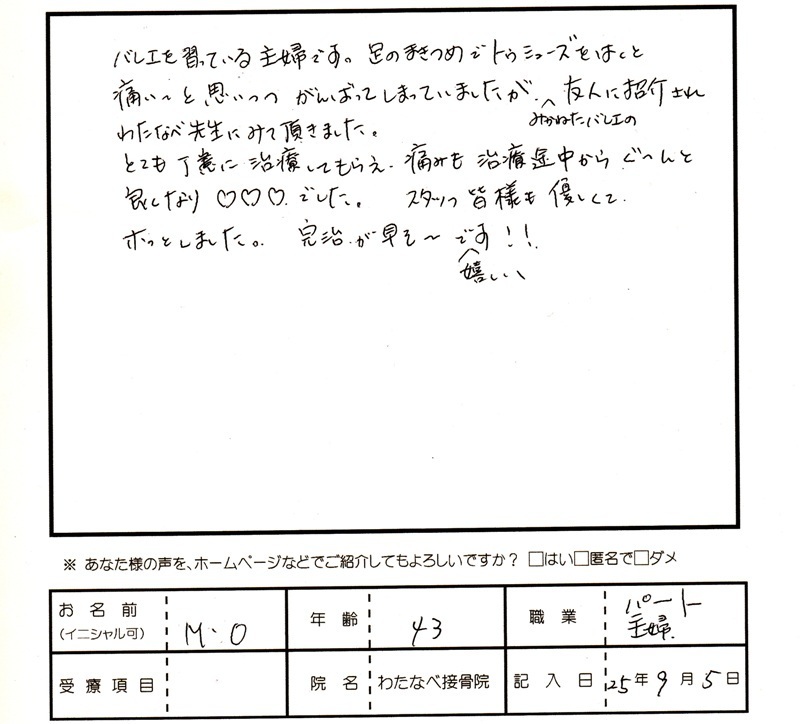 バレエを習っている主婦です。足のまきつめでトゥシューズをはくと
痛い〜と思いつつ がんばってしまっていましたが、友人に紹介され
バレエの
わたなべ先生にみて頂きました。
とても丁寧に治療してもらえ、痛みも治療途中からぐ〜んと
良くなり♡♡♡でした。 スタッフ皆様も優しくて
ホッとしました。 完治が早そ〜です!!
嬉しい、
※ あなた様の声を、ホームページなどでご紹介してもよろしいですか? □はい□匿名で□ダメ
お名前 (イニシャル可) M・O 年齢 43 職業 パート主婦
受療項目 院名 わたなべ接骨院 記入日 25年9月5日